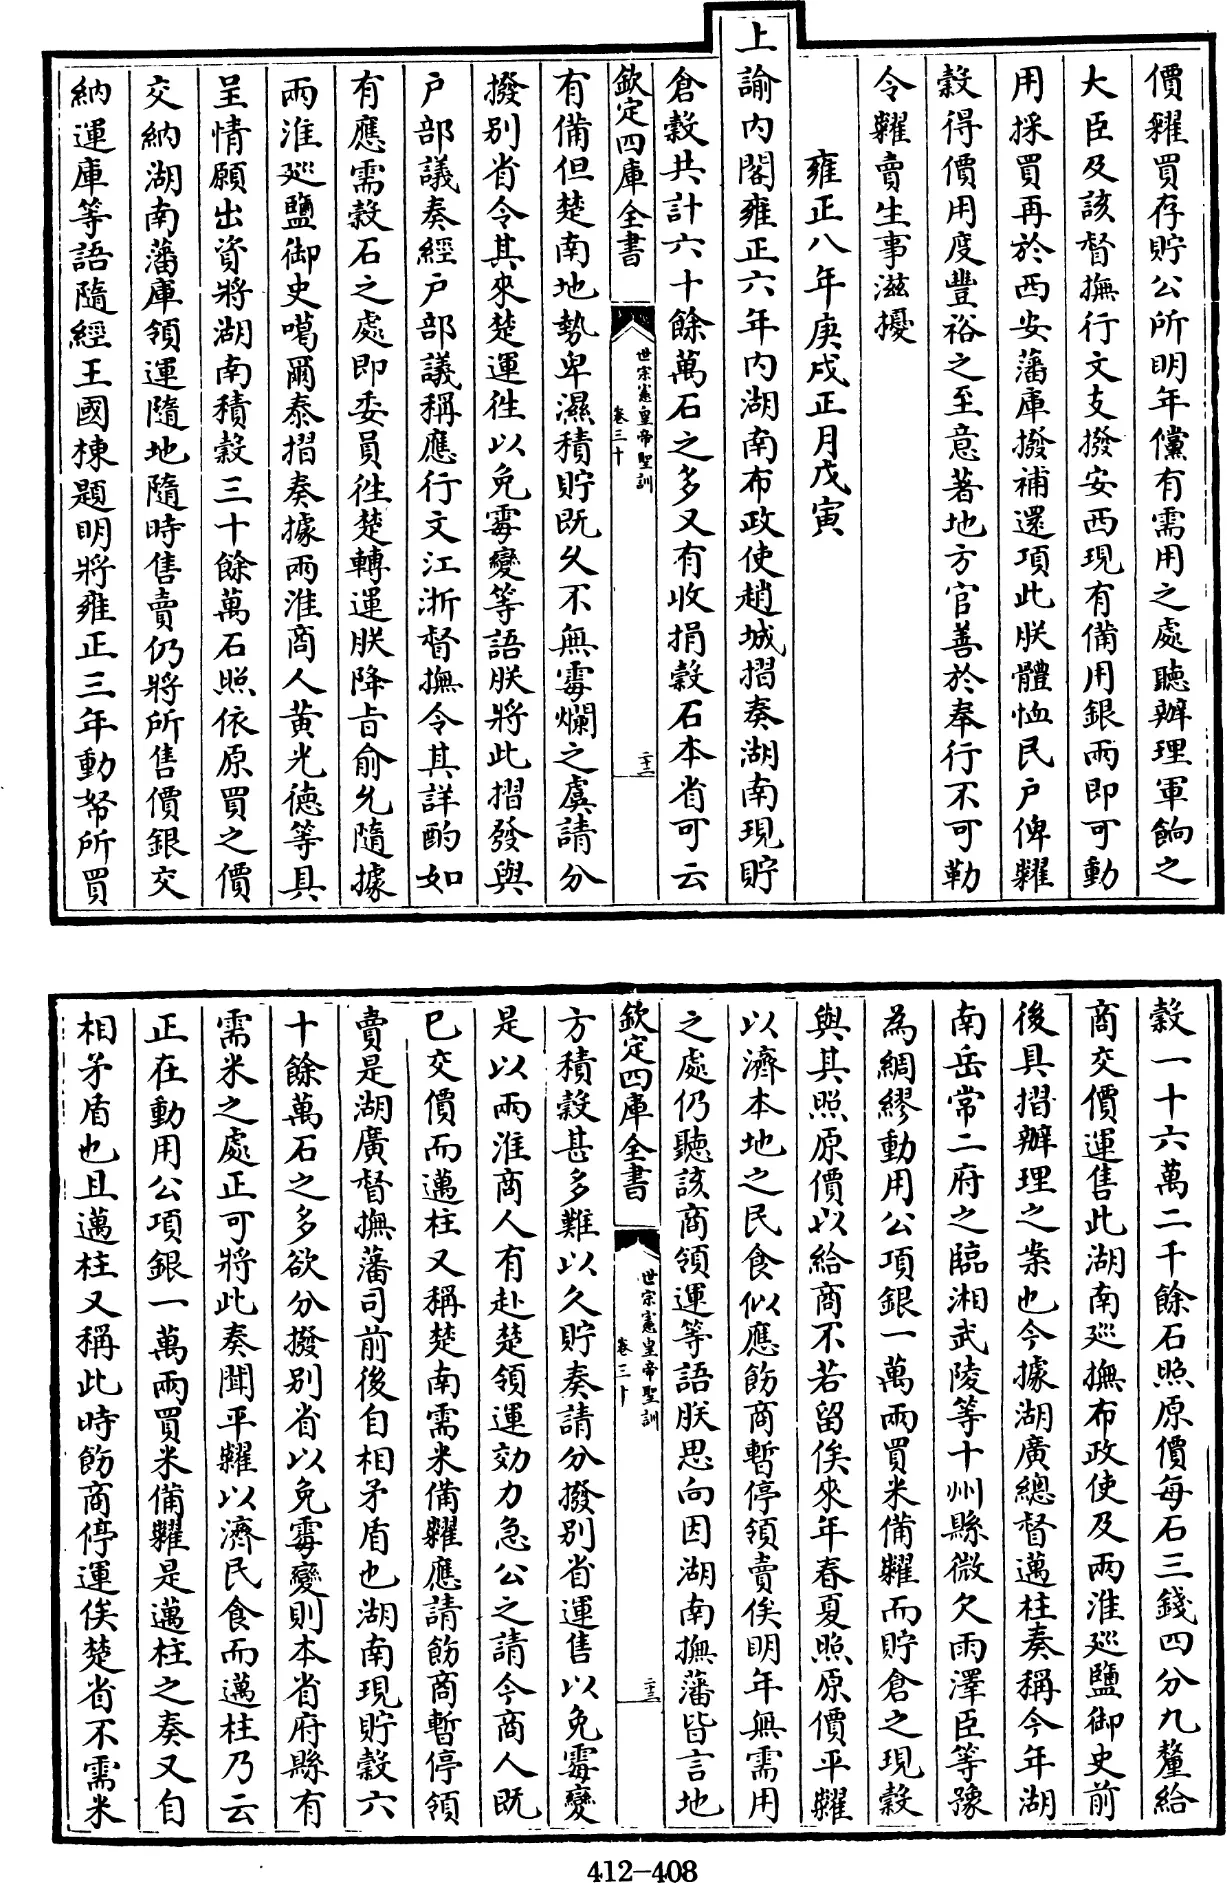 價糴買存貯公所明年儻有需用之處聽辦理軍餉之
大臣及該督撫行文支撥安西現有備用銀兩即可動
用採買再於西安藩庫撥補還項此朕體恤民户俾糶
穀得價用度豐裕之至意著地方官善於奉行不可勒
令糶賣生事滋擾
雍正八年庚戌正月戊寅
上諭内閣雍正六年内湖南布政使趙城摺奏湖南現貯
倉穀共計六十餘萬石之多又有收捐穀石本省可云
欽定四庫全書
世宗憲皇帝聖訓
卷三十
二十二
有備但楚南地勢卑濕積貯既久不無霉爛之虞請分
撥別省令其來楚運徃以免霉變等語朕將此摺發與
户部議奏經户部議稱應行文江浙督撫令其詳酌如
有應需穀石之處即委員徃楚轉運朕降旨俞允隨據
兩淮廵鹽御史噶爾泰摺奏據兩淮商人黄光德等具
呈情願出資將湖南積穀三十餘萬石照依原買之價
交納湖南藩庫領運隨地隨時售賣仍將所售價銀交
納運庫等語隨經王國棟題明將雍正三年動帑所買
穀一十六萬二千餘石照原價每石三錢四分九釐給
商交價運售此湖南廵撫布政使及兩淮廵鹽御史前
後具摺辦理之案也今據湖廣總督邁柱奏稱今年湖
南岳常二府之臨湘武陵等十州縣微欠雨澤臣等豫
為綢繆動用公項銀一萬兩買米備糶而貯倉之現穀
與其照原價以給商不若留俟來年春夏照原價平糶
以濟本地之民食似應飭商暫停領賣俟明年無需用
之處仍聽該商領運等語朕思向因湖南撫藩皆言地
欽定四庫全書
世宗憲皇帝聖訓
卷三十
二十三
方積穀甚多難以久貯奏請分撥別省運售以免霉變
是以兩淮商人有赴楚領運効力急公之請今商人既
已交價而邁柱又稱楚南需米備糶應請飭商暫停領
賣是湖廣督撫藩司前後自相矛盾也湖南現貯穀六
十餘萬石之多欲分撥別省以免霉變則本省府縣有
需米之處正可將此奏聞平糶以濟民食而邁柱乃云
正在動用公項銀一萬兩買米備糶是邁柱之奏又自
相矛盾也且邁柱又稱此時飭商停運俟楚省不需米
412-408